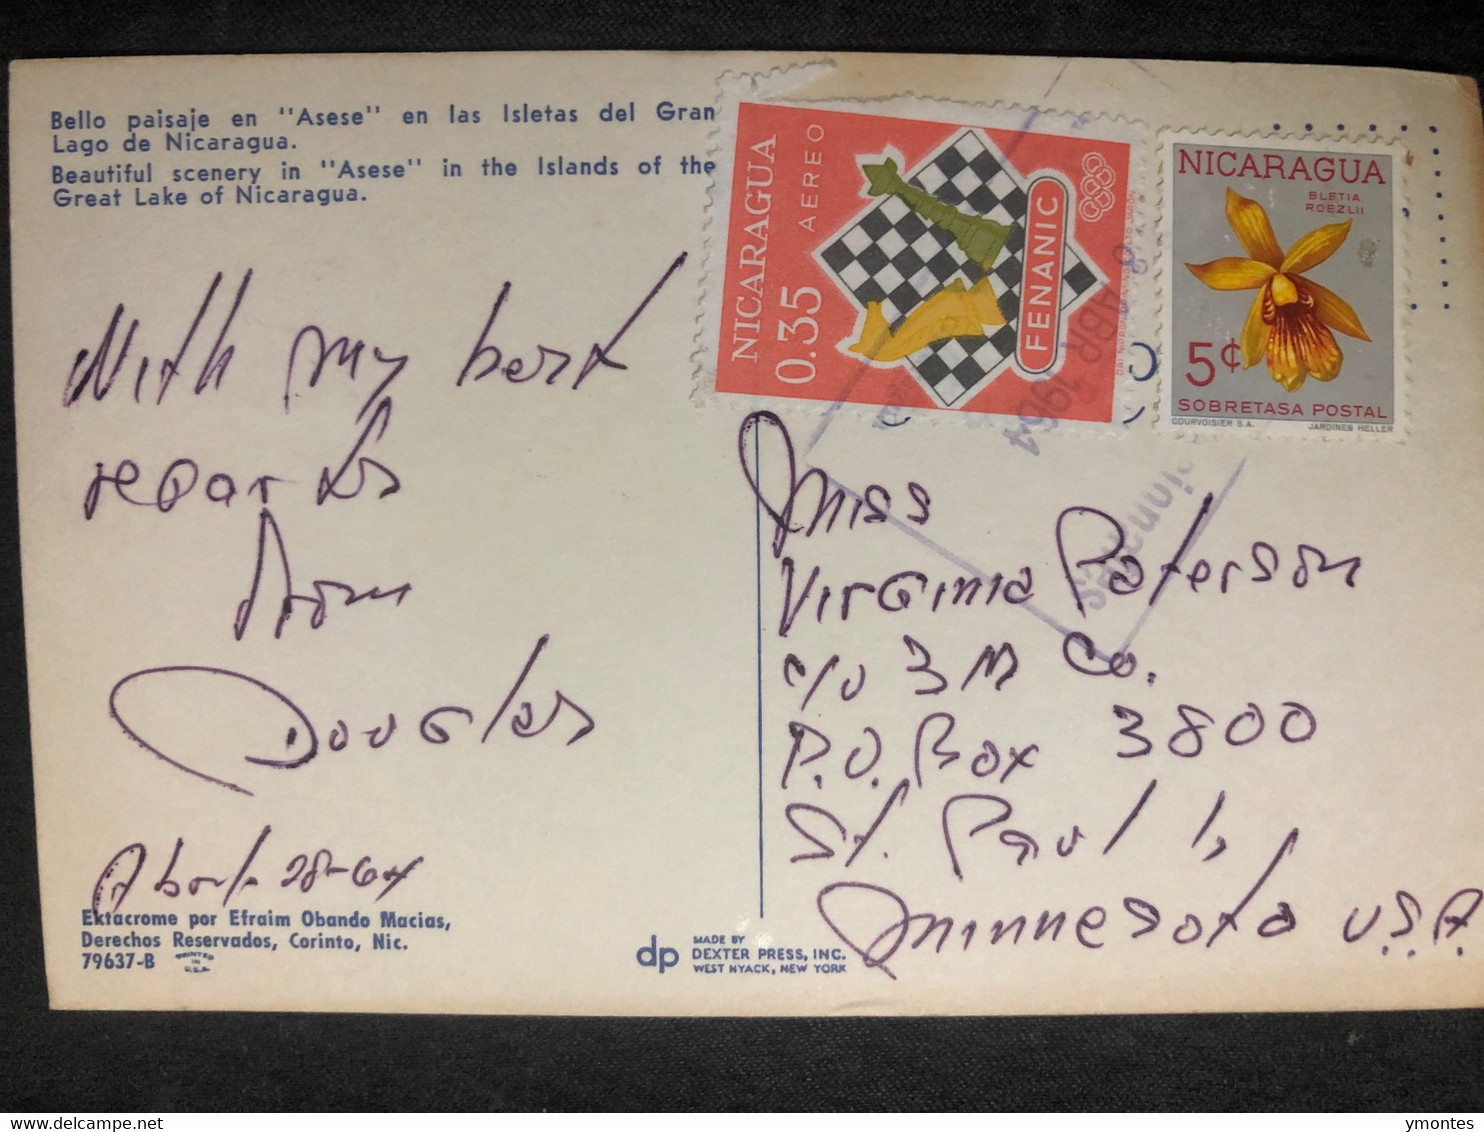 Bello paisaje en "Asese" en las Isletas del Gran
Lago de Nicaragua.
Beautiful scenery in "Asese" in the Islands of the
Great Lake of Nicaragua.
With my best
regards
from
Douglas
28-64
Ektacrome por Efraim Obando Macias,
Derechos Reservados, Corinto, Nic.
79637-B
PRINTED
IN
U.S.A.
dp
MADE BY
DEXTER PRESS, INC.
WEST NYACK, NEW YORK
NICARAGUA
0.35 AEREO
FENANIC
NICARAGUA
BLETIA
ROEZLII
5¢
SOBRETASA POSTAL
COURVOISIER S.A. JARDINES HELLER
ABR 1964
Miss
Virginia Paterson
c/o 3M Co.
P.O. Box 3800
St. Paul 1,
Minnesota U.S.A.
delcampe.net
ymontes